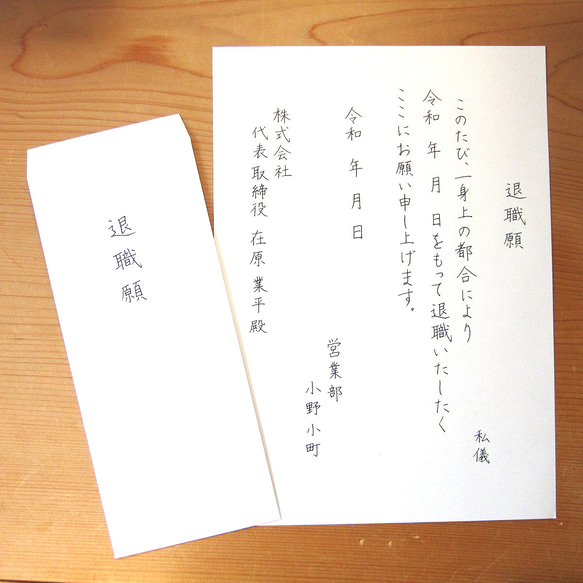 退職願
私儀
このたび、一身上の都合により
令和 年 月 日をもって退職いたしたく
ここにお願い申し上げます。
令和 年 月 日
営業部
小野小町
株式会社
代表取締役 在原業平殿
退職願